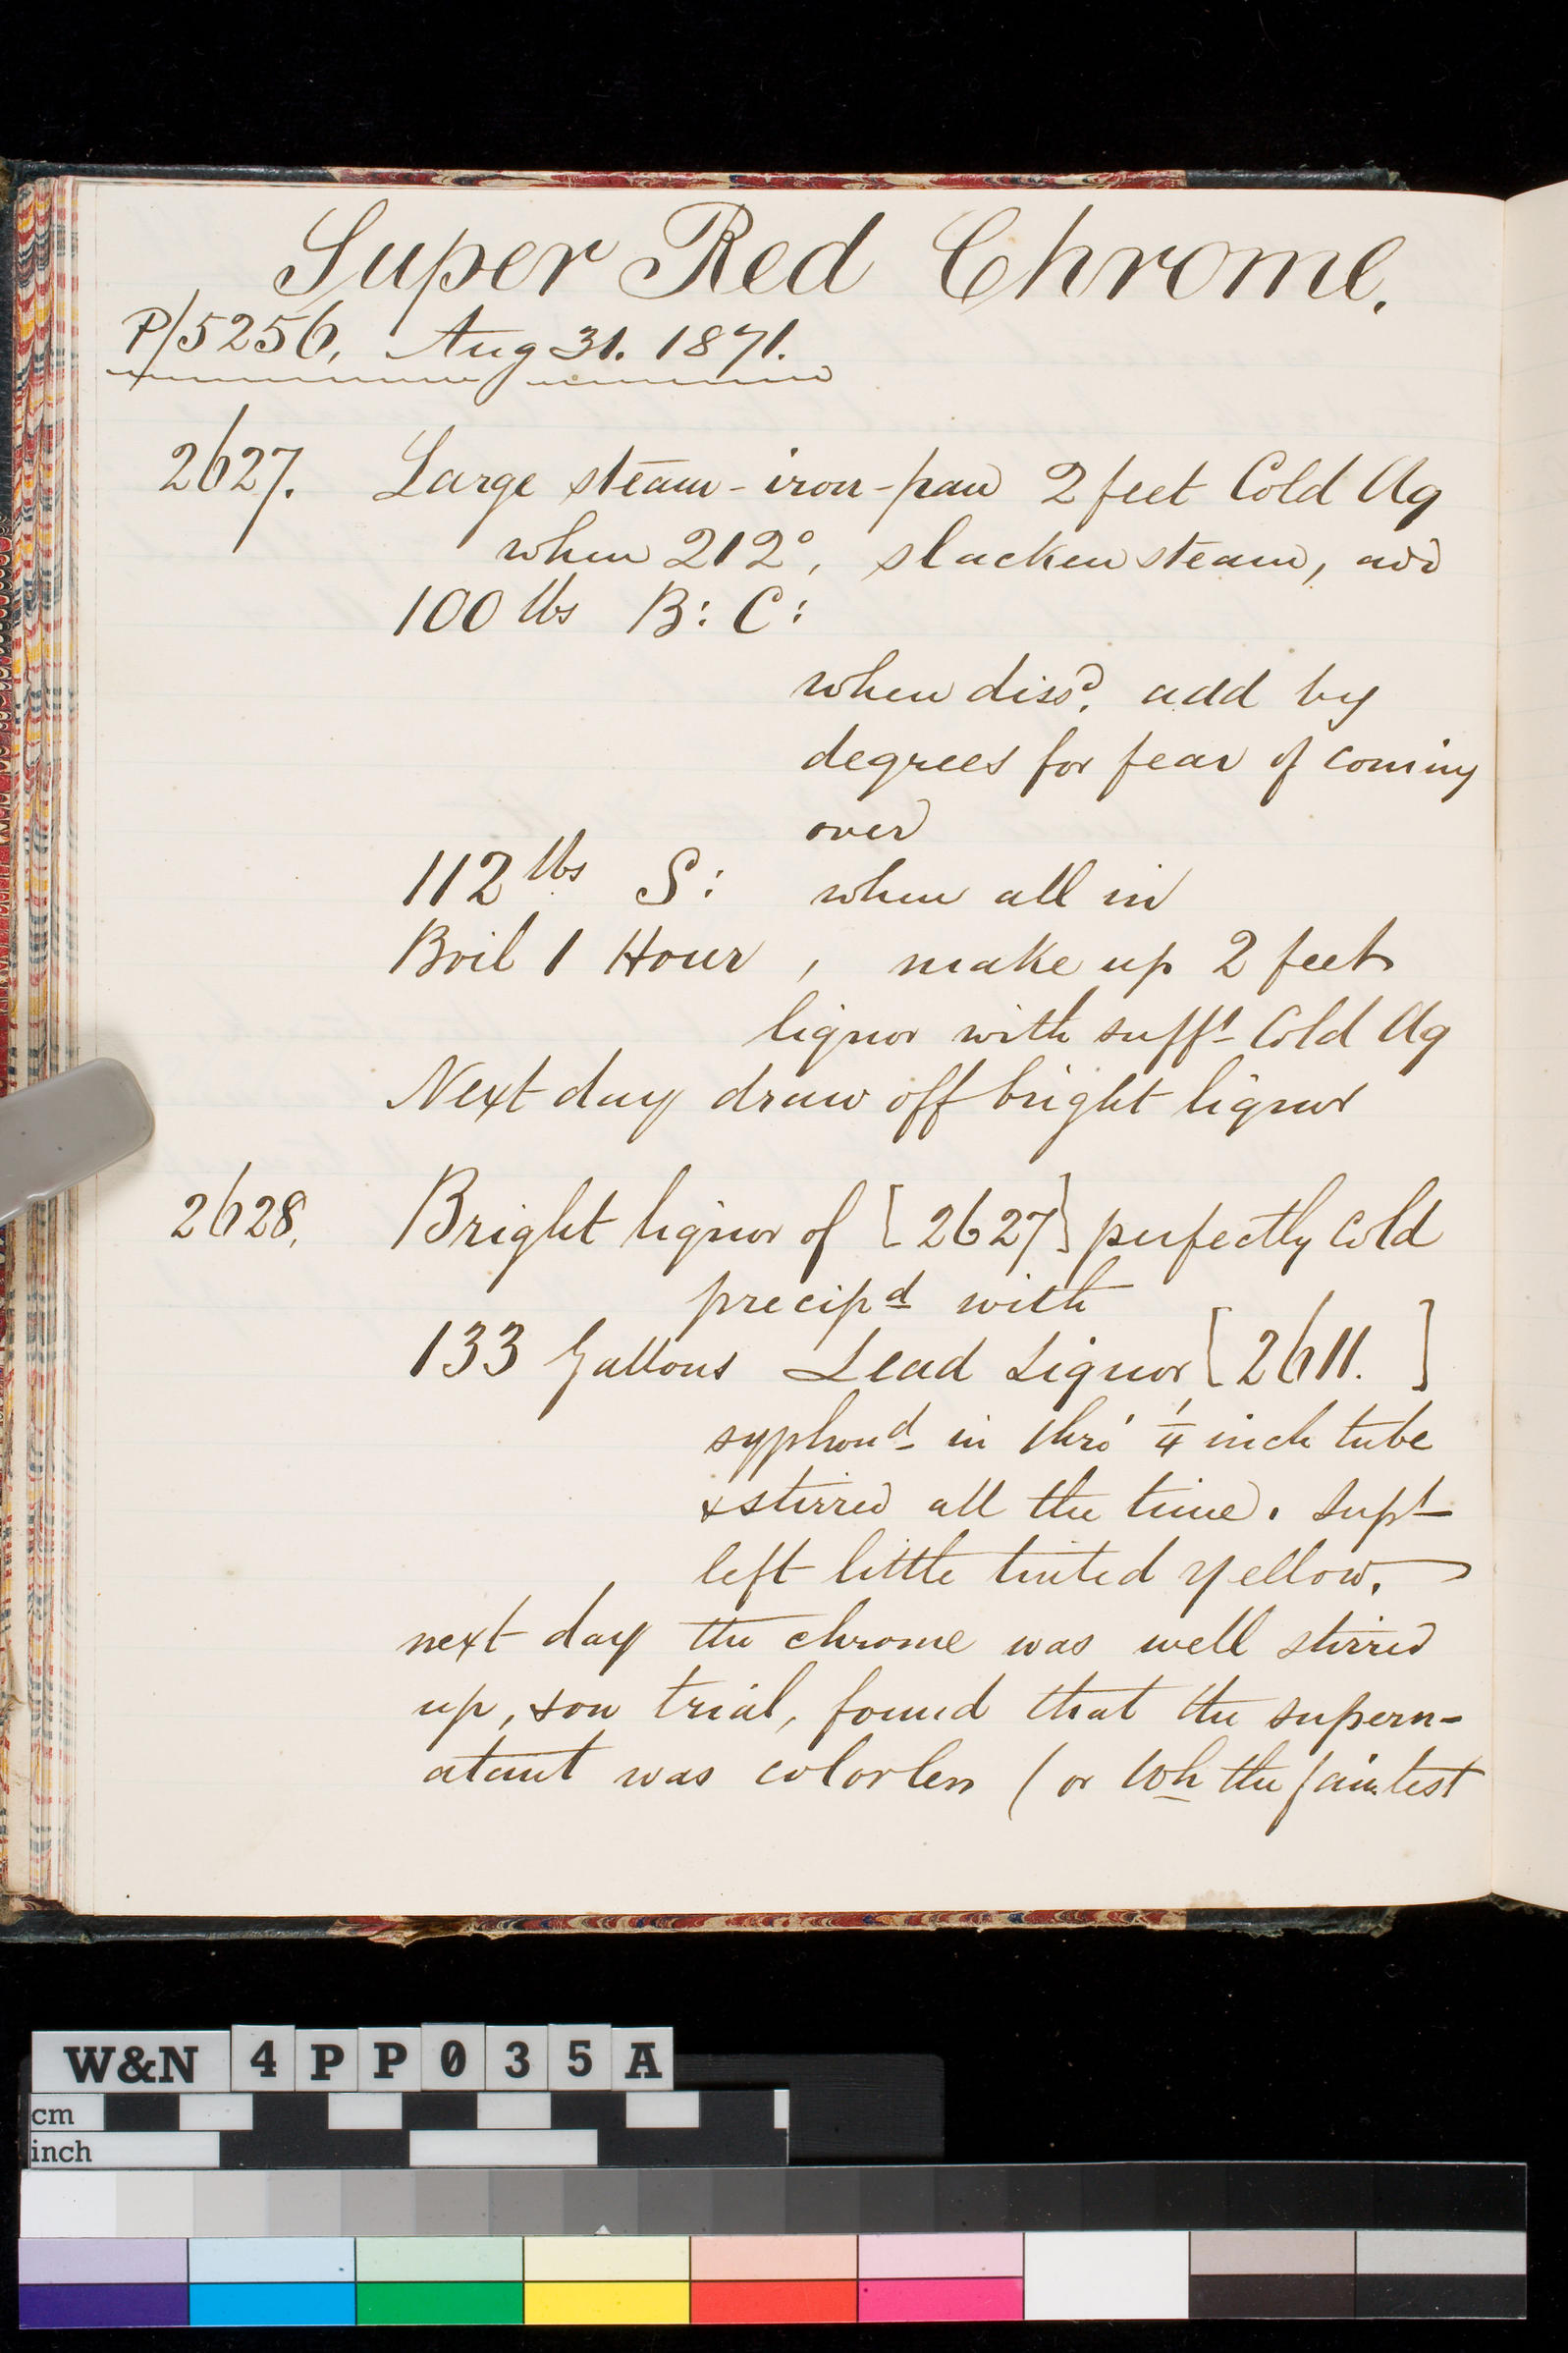 Super Red Chrome.
P/5256, Aug 31. 1871.
2627. Large steam-iron-pan 2 feet Cold Aq
when 212°, slacken steam, add
100 lbs B: C:
when dissd. add by
degrees for fear of coming
over
112 lbs S: when all in
Boil 1 Hour, make up 2 feet
liquor with sufft Cold Aq
Next day draw off bright liquor
2628, Bright liquor of [2627] perfectly cold
precipd with
133 Gallons Lead Liquor [2611. ]
syphond in thro' 1/4 inch tube
& stirred all the time. Supt
left little tinted yellow.
next day the chrome was well stirred
up, & on trial, found that the supern-
atant was colorless (or wh the faintest
W&N 4PP035A
cm
inch